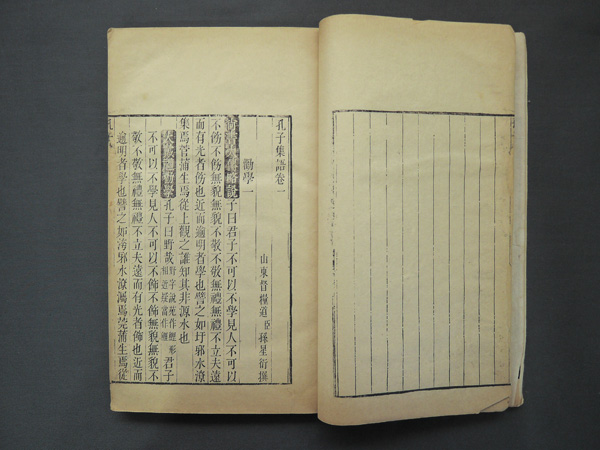 孔子集語卷一
山東督糧道臣孫星衍撰
勸學一
尚書大傳略說子曰君子不可以不學見人不可以
不飭不飭無貌無貌不敬不敬無禮無禮不立夫遠
而有光者飭也近而逾明者學也譬之如圩邪水潦
集焉菅蒲生焉從上觀之誰知其非源水也
大戴禮勸學孔子曰野哉君子
不可以不學見人不可以不飾不飾無貌無貌不
敬不敬無禮無禮不立夫遠而有光者飾也近而
逾明者學也譬之如洿邪水潦灟焉莞蒲生焉從